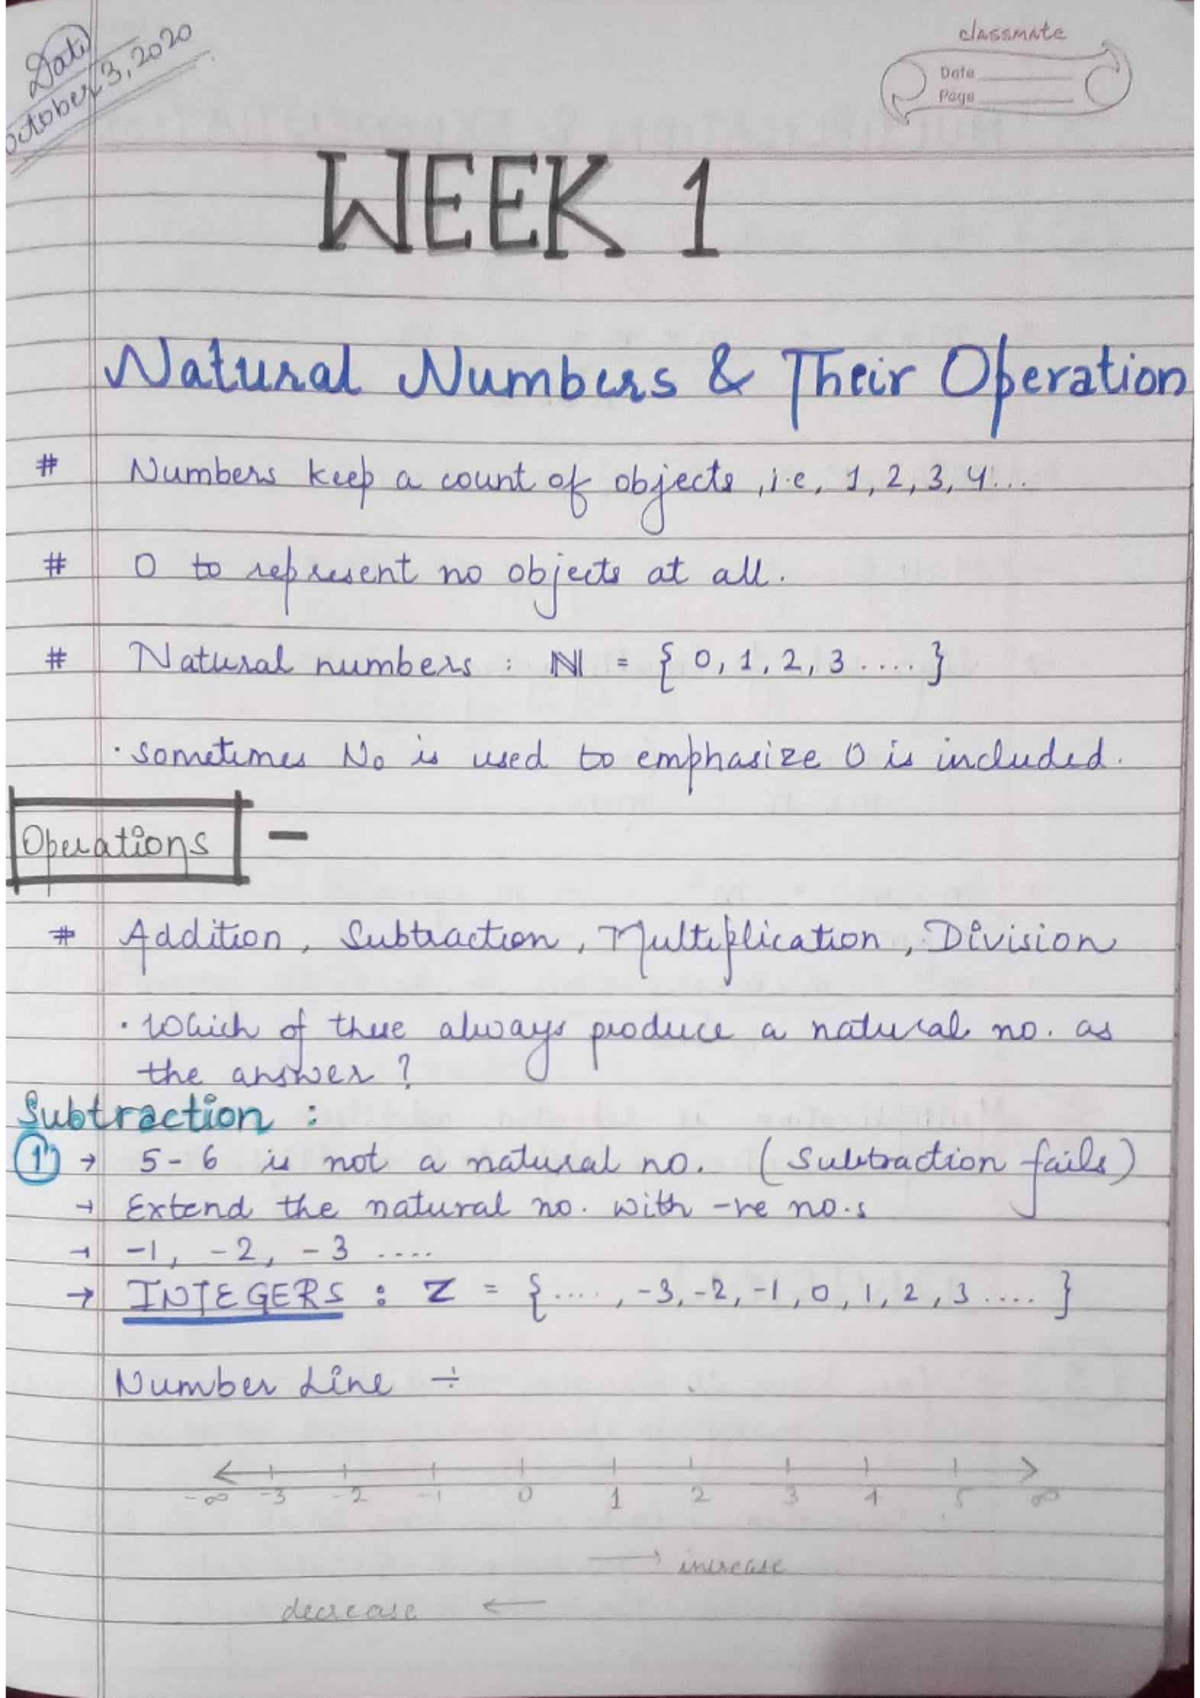 Date
October 3, 2020
classmate
Date
Page
WEEK 1
Natural Numbers & Their Operation
# Numbers keep a count of objects, i.e, 1, 2, 3, 4...
# 0 to represent no objects at all.
# Natural numbers : ℕ = { 0, 1, 2, 3 .... }
· sometimes N₀ is used to emphasize 0 is included.
Operations —
# Addition, Subtraction, Multiplication, Division
· Which of these always produce a natural no. as
the answer ?
Subtraction :
① → 5 - 6 is not a natural no. (Subtraction fails)
→ Extend the natural no. with -ve no.s
→ -1, -2, -3 ....
→ INTEGERS : Z = { ...., -3, -2, -1, 0, 1, 2, 3 .... }
Number Line ÷
-∞ -3 -2 -1 0 1 2 3 4 5 ∞
→ increase
decrease ←